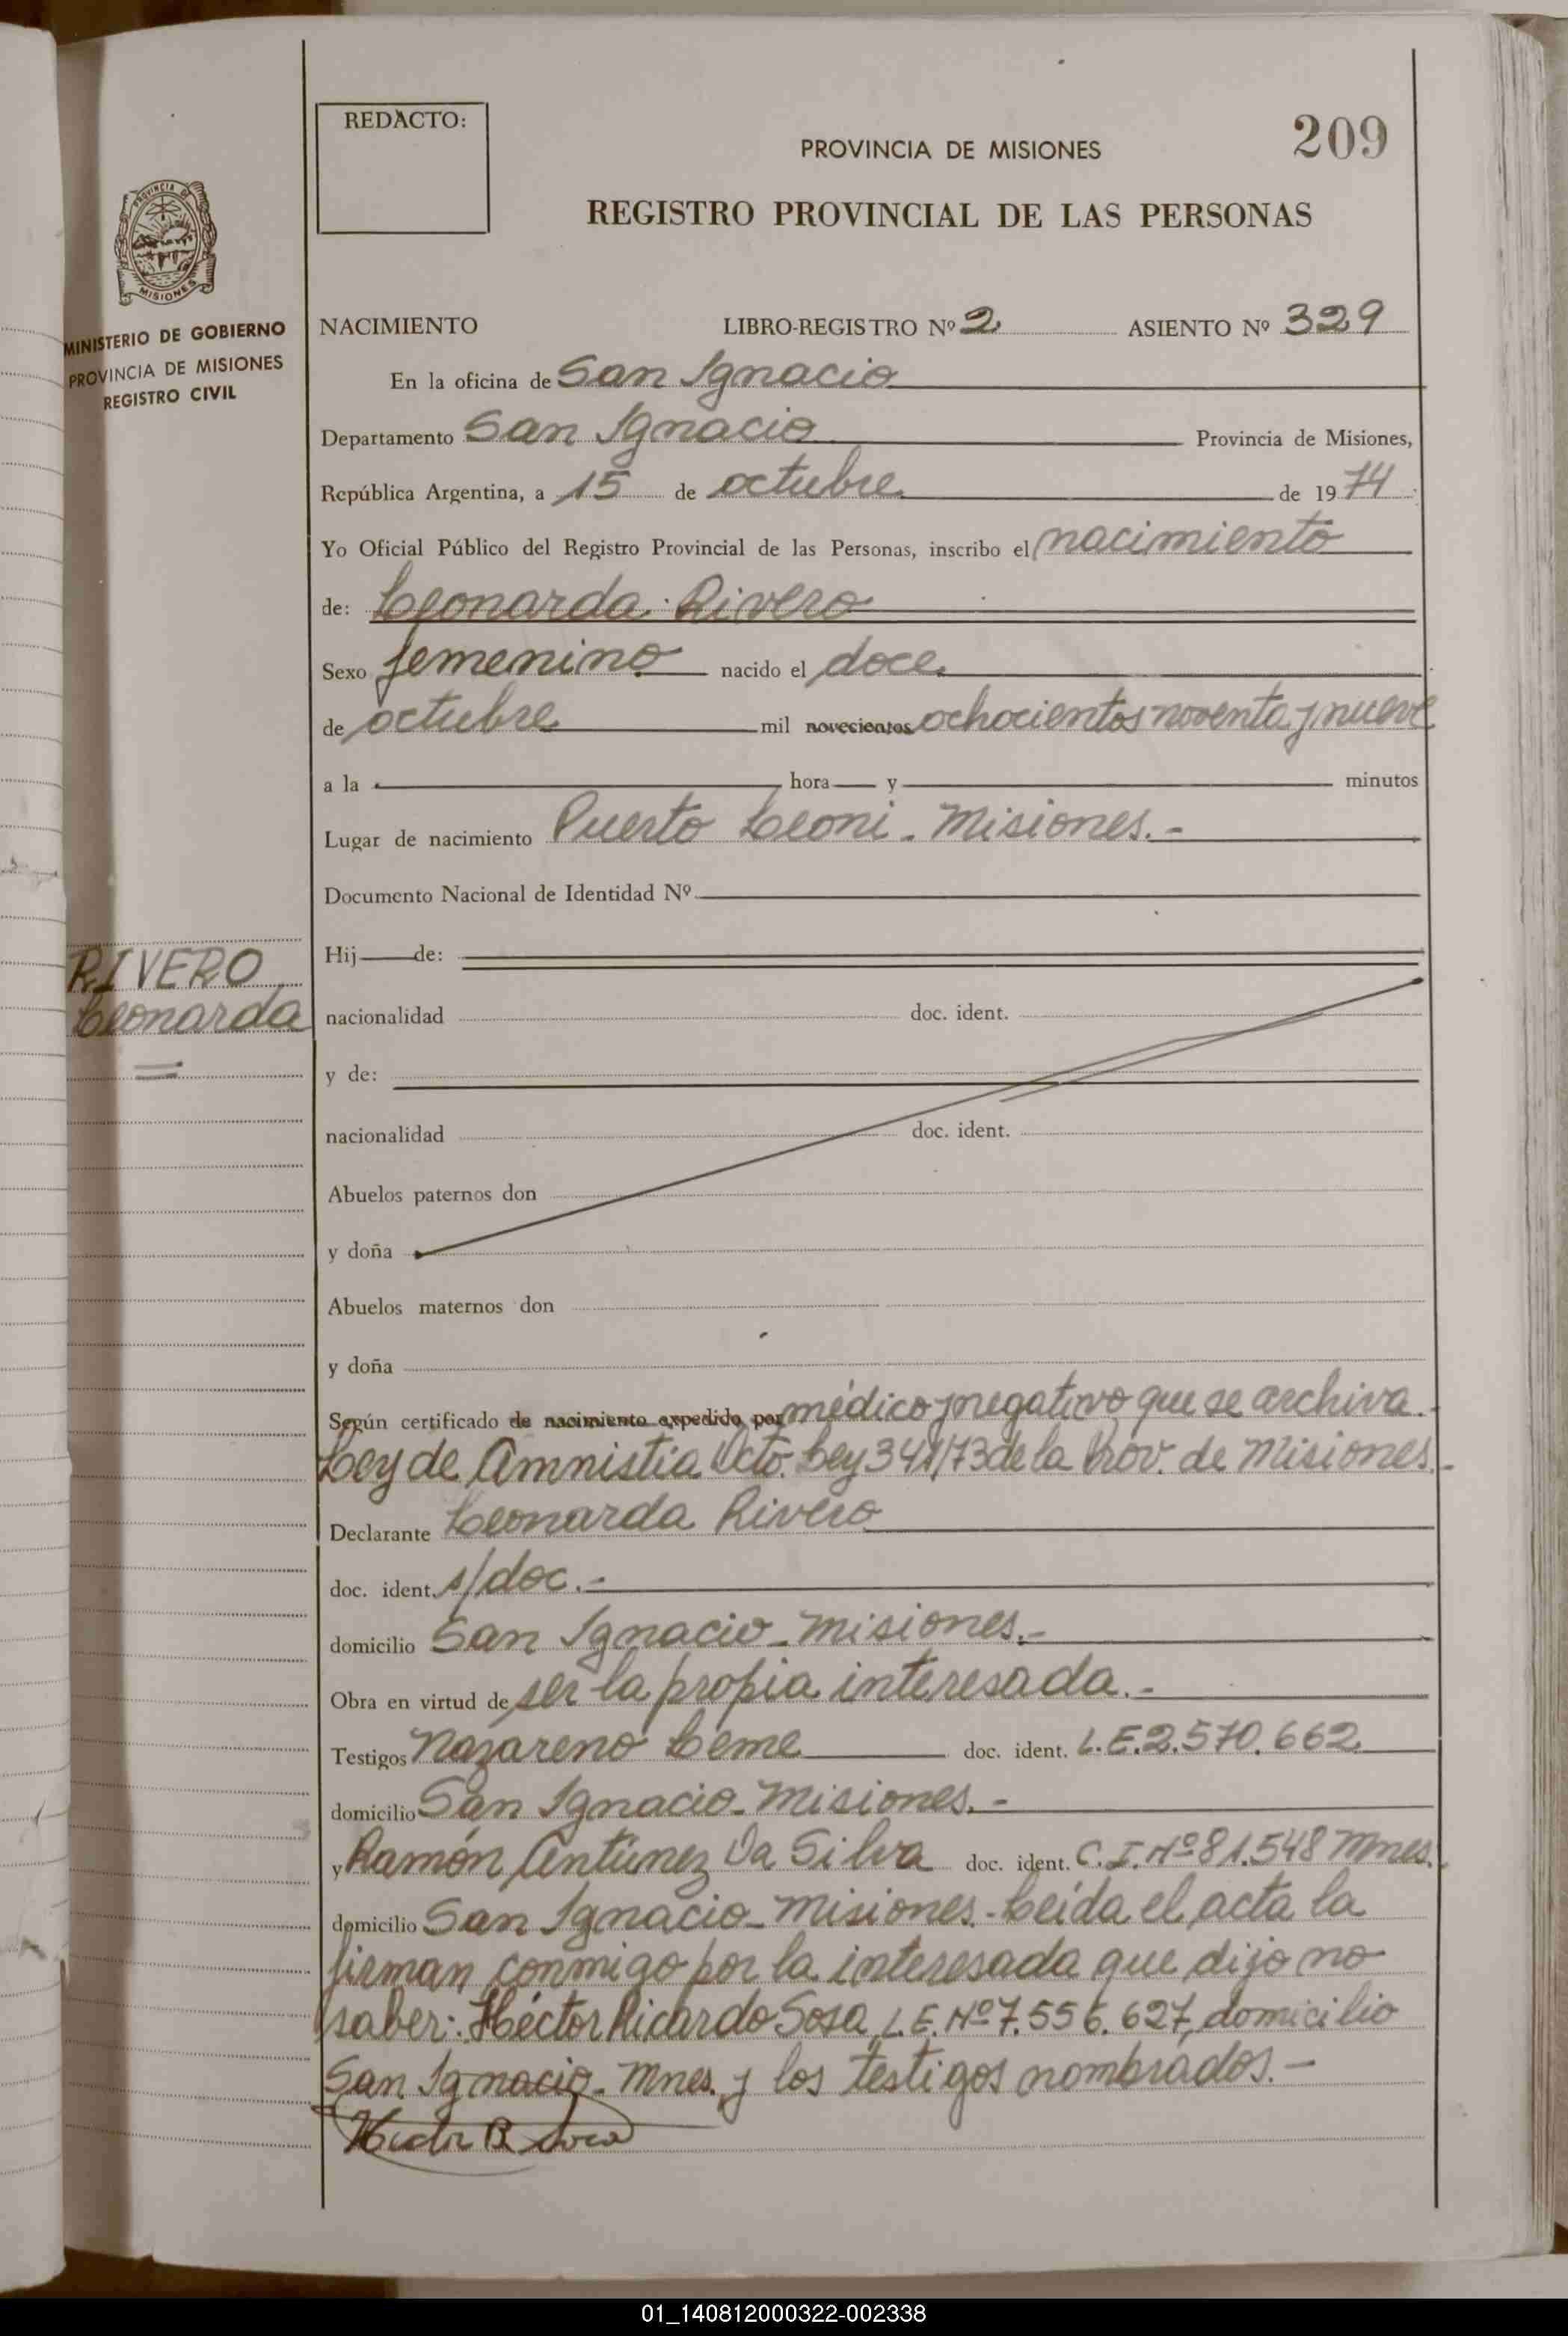 REDACTO:
PROVINCIA DE MISIONES
209
REGISTRO PROVINCIAL DE LAS PERSONAS
PROVINCIA DE
MISIONES
MINISTERIO DE GOBIERNO
PROVINCIA DE MISIONES
REGISTRO CIVIL
NACIMIENTO LIBRO-REGISTRO Nº 2 ASIENTO Nº 329
En la oficina de San Ignacio
Departamento San Ignacio Provincia de Misiones,
República Argentina, a 15 de octubre de 1974
Yo Oficial Público del Registro Provincial de las Personas, inscribo el nacimiento
de: Leonarda Rivero
Sexo femenino nacido el doce
de octubre mil novecientos ochocientos noventa y nueve
a la hora y minutos
Lugar de nacimiento Puerto Leoni - Misiones.-
Documento Nacional de Identidad Nº
Hij de:
RIVERO
Leonarda
nacionalidad doc. ident.
y de:
nacionalidad doc. ident.
Abuelos paternos don
y doña
Abuelos maternos don
y doña
Según certificado de nacimiento expedido por médico y negativo que se archiva.
Ley de Amnistia Dcto. Ley 341/73 de la Prov. de Misiones.-
Declarante Leonarda Rivero
doc. ident. s/doc.-
domicilio San Ignacio - Misiones.-
Obra en virtud de ser la propia interesada.-
Testigos Nazareno Leme doc. ident. L.E. 2.570.662
domicilio San Ignacio - Misiones.-
y Ramón Antúnez Da Silva doc. ident. C.I. Nº 81.548 Mnes.
domicilio San Ignacio - Misiones.- Leída el acta la
firman conmigo por la interesada que dijo no
saber: Héctor Ricardo Sosa L.E. Nº 7.556.627, domicilio
San Ignacio - Mnes. y los testigos nombrados.-
Hector R Sosa
01_140812000322-002338